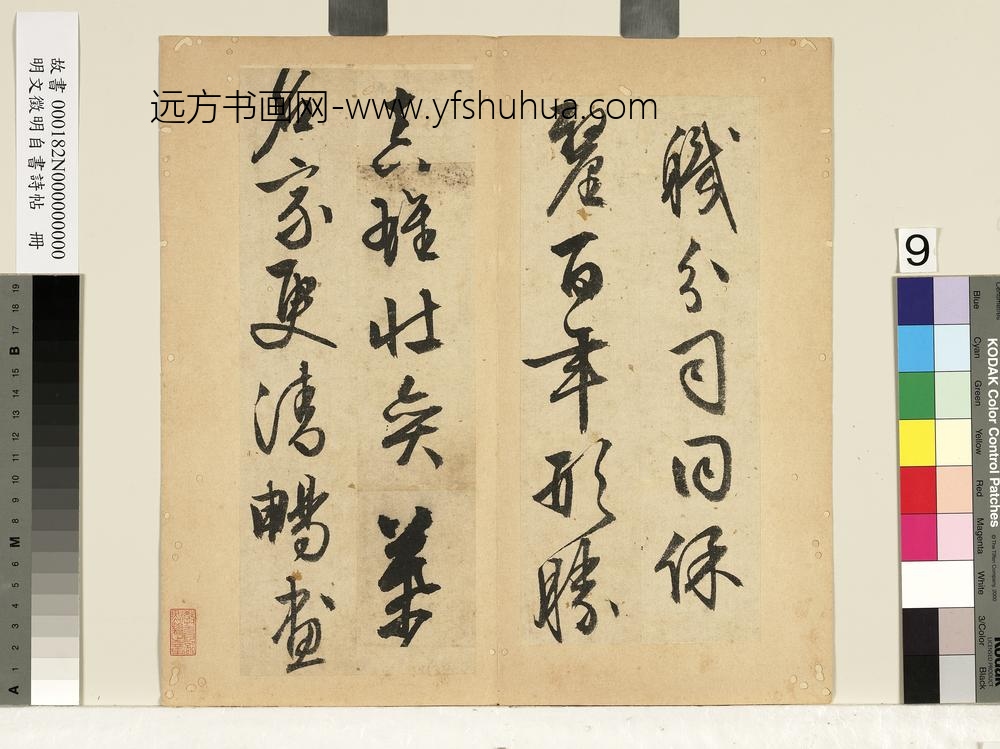 远方书画网-www.yfshuhua.com
職分司同保
釐百年形勝
真雄壯奕葉
名家更清暢畫
故書 000182N000000000
明文徵明自書詩帖 冊
9
KODAK Color Control Patches
Blue
Cyan
Green
Yellow
Red
Magenta
White
3/Color
Black
A 1 2 3 4 5 6 M 8 9 10 11 12 13 14 15 B 17 18 19